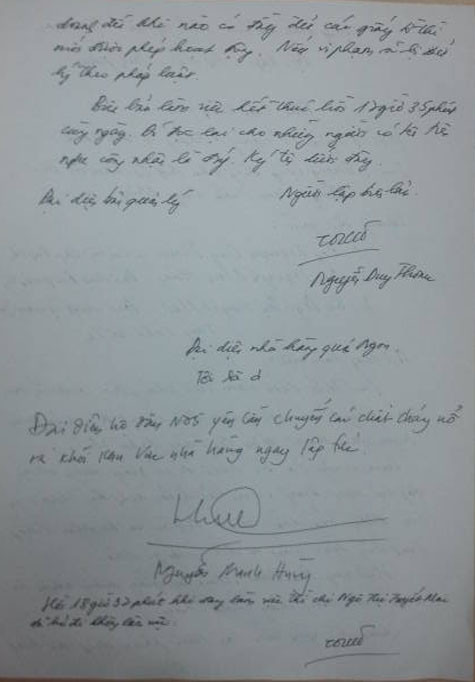 dừng đến khi nào có đầy đủ các giấy tờ thì
mới được phép hoạt động. Nếu vi phạm sẽ bị xử
lý theo pháp luật.
Biên bản làm việc kết thúc lúc 17 giờ 35 phút
cùng ngày. Đã đọc lại cho những người có tên
nghe công nhận là đúng. Ký tên dưới đây.
Đại diện ban quản lý
Người lập biên bản.
Nguyễn Duy
Đại diện nhà hàng quá Ngon.
Đại diện hộ dân N05 yêu cầu chuyển các chất cháy nổ
ra khỏi khu vực nhà hàng ngay lập tức.
Nguyễn Mạnh Hùng
Hồi 18 giờ 32 phút khi đang làm việc thì chị Ngô Thị Tuyết Mai